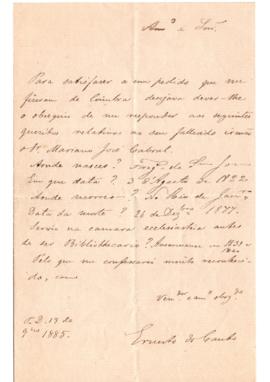 Am.º e Snr.
Para satisfazer a um pedido que me
fizeram de Coimbra desejava dever-lhe
o obsequio de me responder aos seguintes
quesitos relativos ao seu fallecido irmão
o Dr. Marianno José Cabral.
Aonde nasceu?
Em que data? 3 d'Agosto de 1822
Aonde morreu? No Rio de Jan.º
Data da morte? 26 de Dez.bro 1877.
Servio na camara ecclesiastica antes
de ser Bibliothecario?
Pelo que me confessarei muito reconhe-
cido, como
Ven.dor e am.º obrg.do
P. D. 13 de
9.bro 1885.
Ernesto do Canto